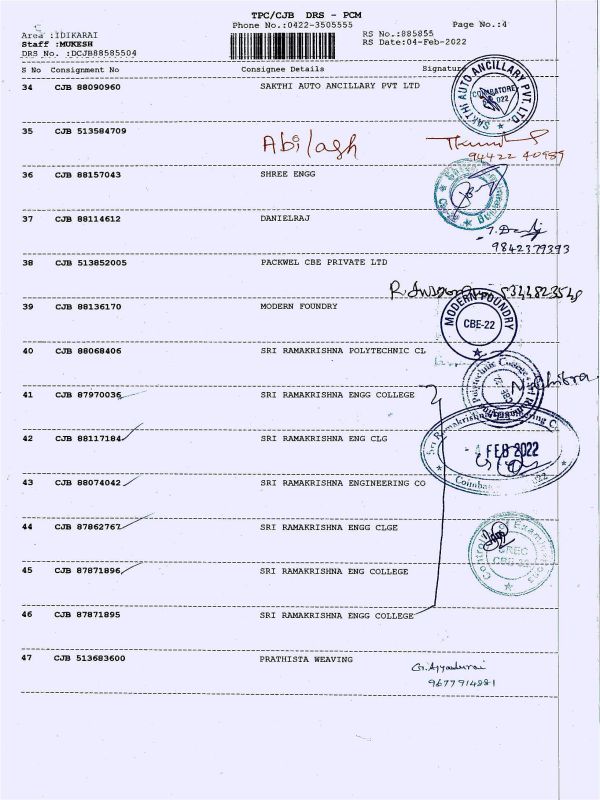 TPC/CJB DRS - PCM
Phone No.:0422-3505555 Page No.:4
Area :IDIKARAI RS No.:885855
Staff :MUKESH RS Date:04-Feb-2022
DRS No. :DCJB88585504
S No Consignment No Consignee Details Signature
34 CJB 88090960 SAKTHI AUTO ANCILLARY PVT LTD
SAKTHI AUTO ANCILLARY PVT. LTD.
COIMBATORE
022
35 CJB 513584709 Abilash
94422 40959
36 CJB 88157043 SHREE ENGG
37 CJB 88114612 DANIELRAJ
9842379393
38 CJB 513852005 PACKWEL CBE PRIVATE LTD
39 CJB 88136170 MODERN FOUNDRY
MODERN FOUNDRY
CBE-22
40 CJB 88068406 SRI RAMAKRISHNA POLYTECHNIC CL
Polytechnic College
41 CJB 87970036 SRI RAMAKRISHNA ENGG COLLEGE
42 CJB 88117184 SRI RAMAKRISHNA ENG CLG
Sri Ramakrishna Engineering C
FEB 2022
Coimbat 22
43 CJB 88074042 SRI RAMAKRISHNA ENGINEERING CO
44 CJB 87862767 SRI RAMAKRISHNA ENGG CLGE
Controller of Examinations
SREC
45 CJB 87871896 SRI RAMAKRISHNA ENG COLLEGE
46 CJB 87871895 SRI RAMAKRISHNA ENGG COLLEGE
47 CJB 513683600 PRATHISTA WEAVING
9677914881